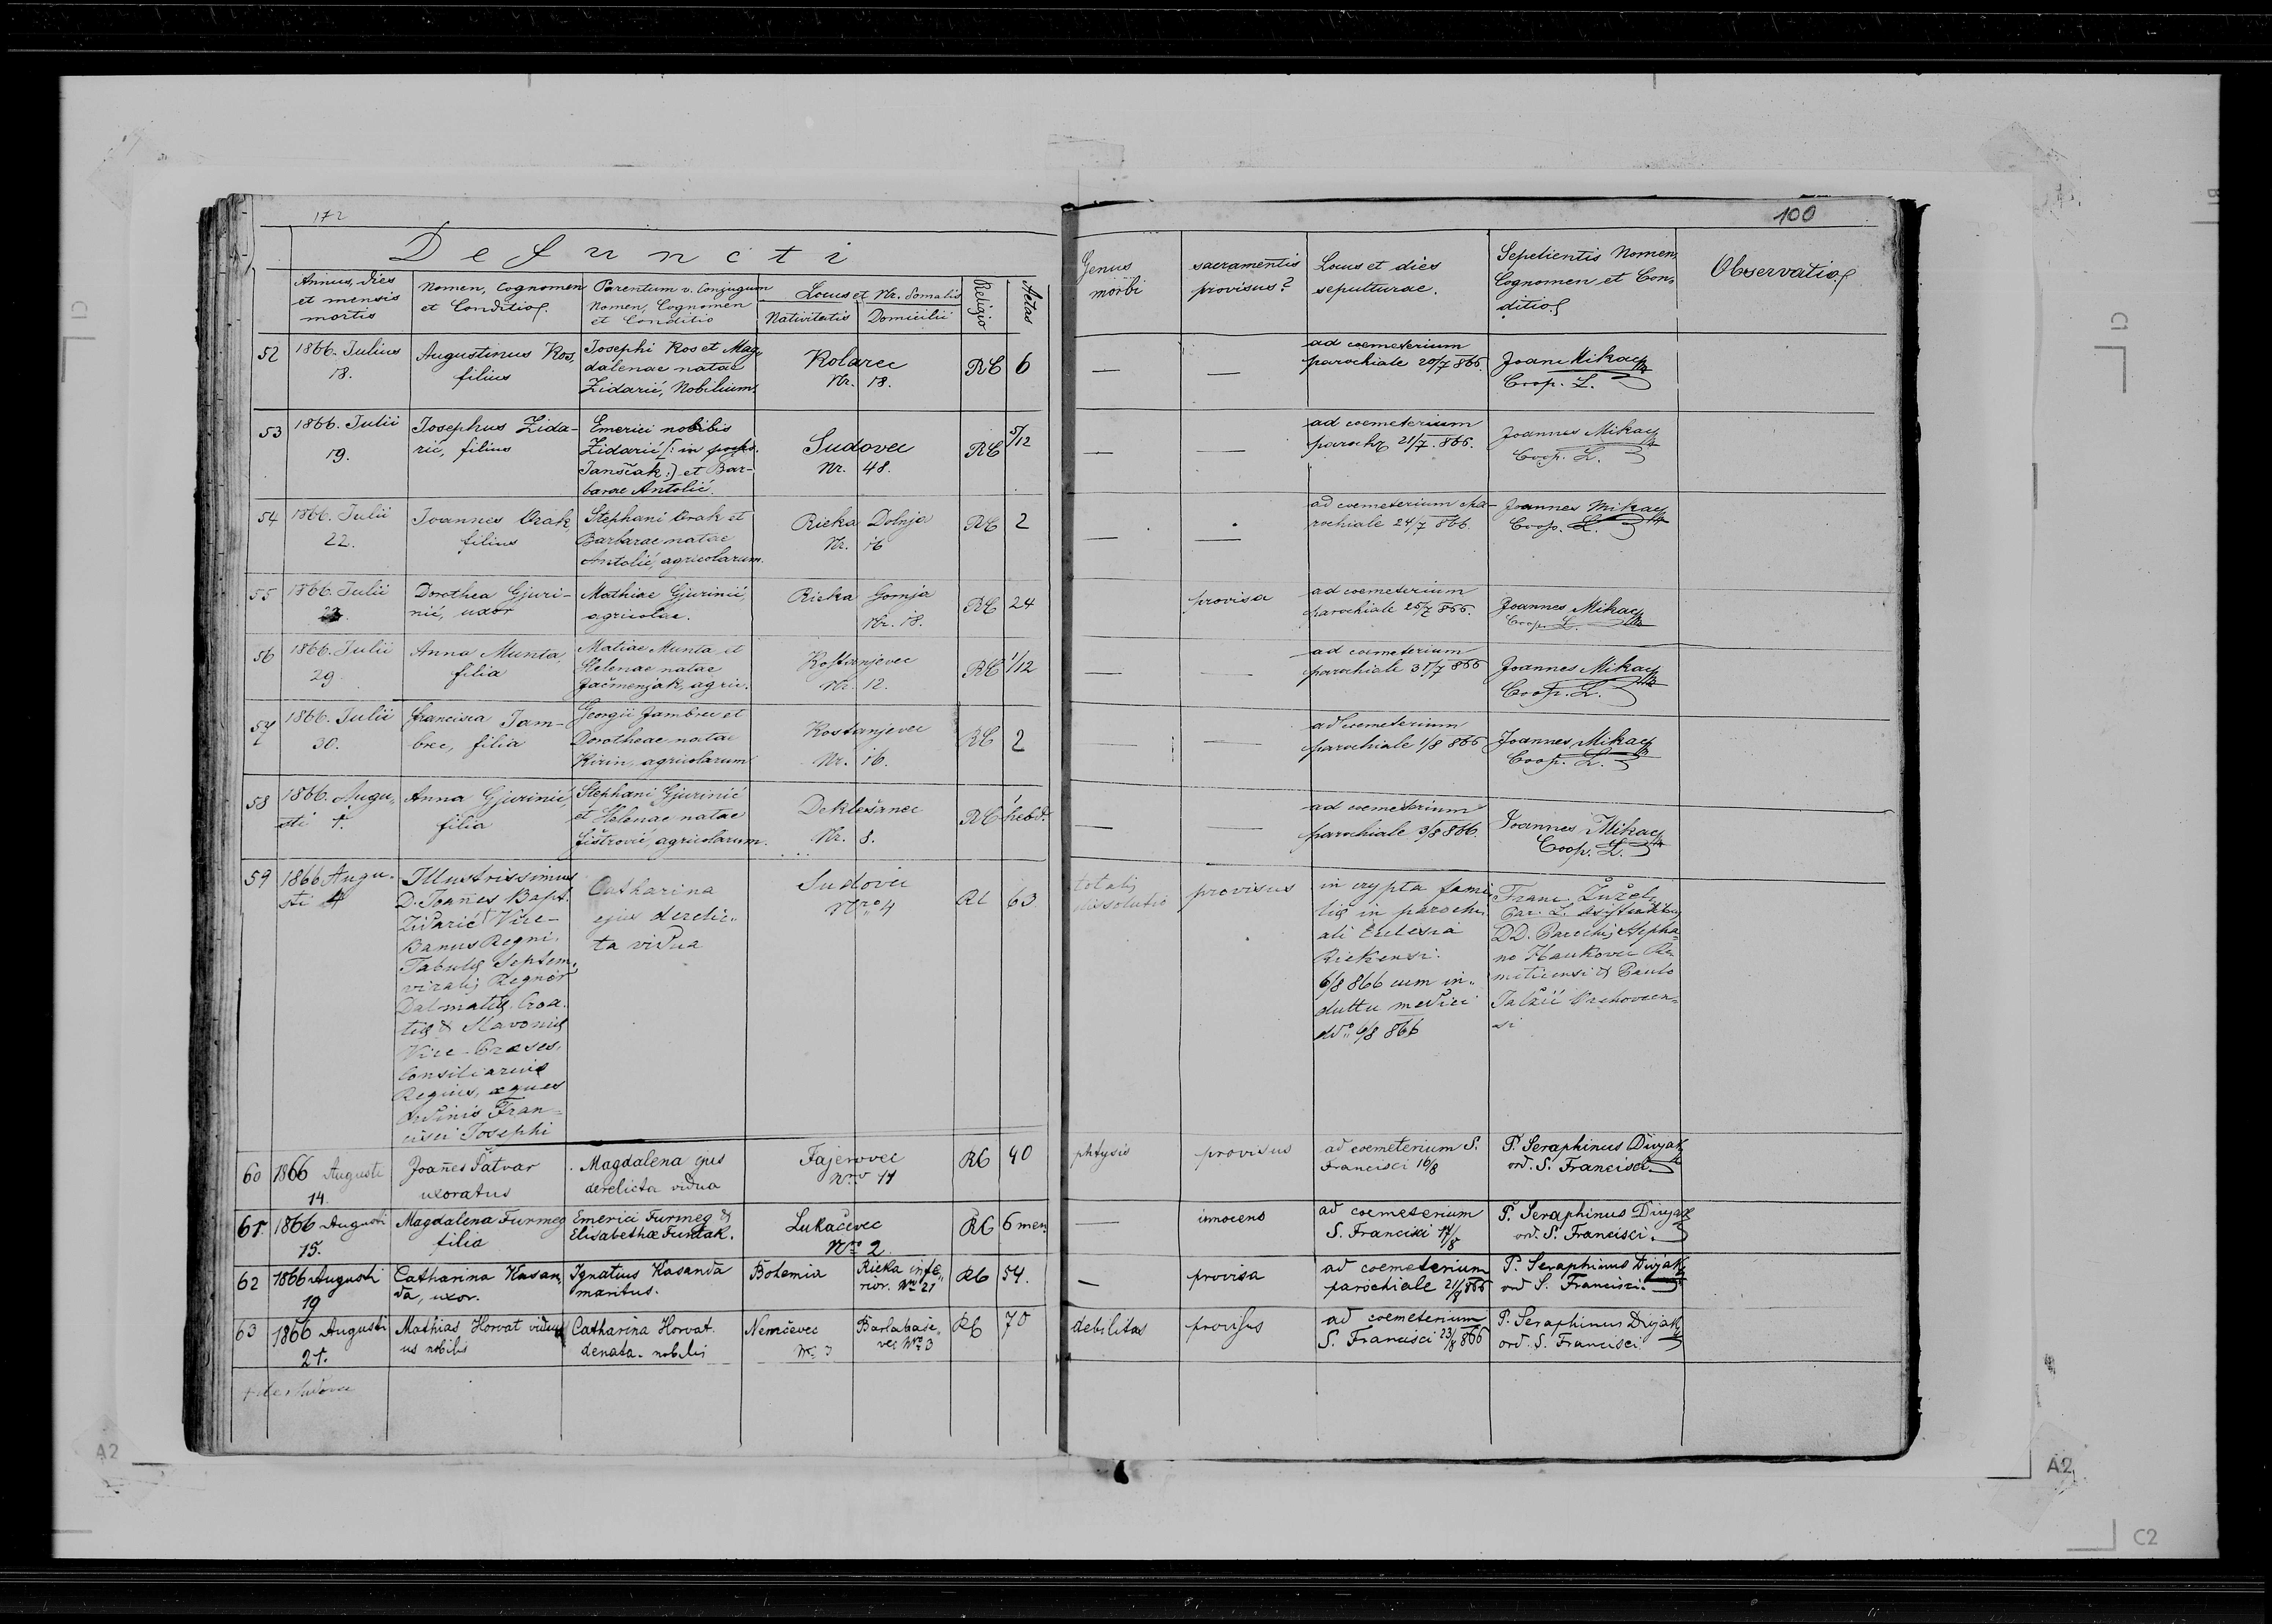 172
100
Defuncti
Annus, dies
et mensis
mortis
Nomen, Cognomen
et Conditio
Parentum v. Conjugum
Nomen, Cognomen
et Conditio
Locus et Nr. Domalis
Nativitatis
Domicilii
Religio
Aetas
Genus
morbi
sacramentis
provisus?
Locus et dies
sepulturae.
Sepelientis Nomen,
Cognomen et Con-
ditio
Observatio
52
1866. Julius
18.
Augustinus Kos,
filius
Josephi Kos et Mag-
dalenae natae
Zidarić, Nobilium.
Kolarec
Nr. 18.
RC
6
—
—
ad coemeterium
parochiale 20/7 866.
Joan. Mikac
Coop. L.
53
1866. Julii
19.
Josephus Zida-
rić, filius
Emerici nobilis
Zidarić [: in
Janščak :] et Bar-
barae Antolić.
Sudovec
Nr. 48.
RC
5/12
—
—
ad coemeterium
paroch 21/7. 866.
Joannes Mikac
Coop. L.
54
1866. Julii
22.
Joannes Orak,
filius
Stephani Orak et
Barbarae natae
Antolić, agricolarum.
Rieka Dolnja
Nr. 16
RC
2
—
—
ad coemeterium pa-
rochiale 24/7 866.
Joannes Mikac
Coop. L.
55
1866. Julii
Dorothea Gjuri-
nić, uxor
Mathiae Gjurinić,
agricolae.
Rieka Gornja
Nr. 18.
RC
24
provisa
ad coemeterium
parochiale 25/7 866.
Joannes Mikac
Coop. L.
56
1866. Julii
29.
Anna Munta,
filia
Matiae Munta et
Helenae natae
Jačmenjak, agric.
Kostanjevec
Nr. 12.
RC
1/12
—
—
ad coemeterium
parochiale 31/7 866
Joannes Mikac
Coop. L.
57
1866. Julii
30.
Francisca Jam-
brec, filia
Georgii Jambrec et
Dorotheae natae
Kirin, agricolarum
Kostanjevec
Nr. 16.
RC
2
—
—
ad coemeterium
parochiale 1/8 866
Joannes Mikac
Coop. L.
58
1866. Augu-
sti 1.
Anna Gjurinić,
filia
Stephani Gjurinić
et Helenae natae
Fištrović, agricolarum.
Deklešanec
Nr. 8.
RC
1
hebd.
—
—
ad coemeterium
parochiale 3/8 866.
Joannes Mikac
Coop. L.
59
1866 Augu-
sti 4
Illustrissimus
D. Joañes Bapt.
Zidarić Vice-
Banus Regni.
Tabulę Septem-
viralis Regnor
Dalmatię, Croa-
tię & Slavonię
Vice-Praeses,
Consiliarius
Regius, eques
Ordinis Fran-
cisci Josephi
Catharina
ejus derelic-
ta vidua
Sudovec
Nro 4
RC
63
totalis
dissolutio
provisus
in crypta fami-
lię in parochi-
ali Ecclesia
Riekensi.
6/8 866 cum in-
dultu medici
ddo 6/8 866
Franc. Žužel,
Par. L. Assistentibus
DD. Parochis Stepha-
no Haukovec Re-
metinensi & Paulo
Jalžić Orehovcen-
si
60
1866 Augusti
14.
Joañes Šatvar
uxoratus
Magdalena ejus
derelicta vidua
Fajerovec
Nro 11
RC
40
phtysis
provisus
ad coemeterium S.
Francisci 16/8
P. Seraphinus Divjak
ord. S. Francisci.
61.
1866 Augusti
15.
Magdalena Furmeg
filia
Emerici Furmeg &
Elisabethæ Funtak.
Lukačevec
Nro 2.
RC
6 men.
—
innocens
ad coemeterium
S. Francisci 17/8
P. Seraphinus Divjak
ord. S. Francisci.
62
1866 Augusti
19
Catharina Kasan-
da, uxor.
Ignatius Kasanda
maritus.
Bohemia
Rieka infe-
rior. Nro 21
RC
54.
—
provisa
ad coemeterium
parochiale 21/8 866
P. Seraphinus Divjak
ord S. Francisci.
63
1866 Augusti
21.
Mathias Horvat vidu-
us nobilis
Catharina Horvat
denata. nobilis
Nemčevec
Nr. 3
Barlabaše-
vec Nro 3
RC
70
debilitas
provisus
ad coemeterium
S. Francisci 23/8 866
P. Seraphinus Divjak
ord. S. Francisci
A2
A2
C1
C1
C2